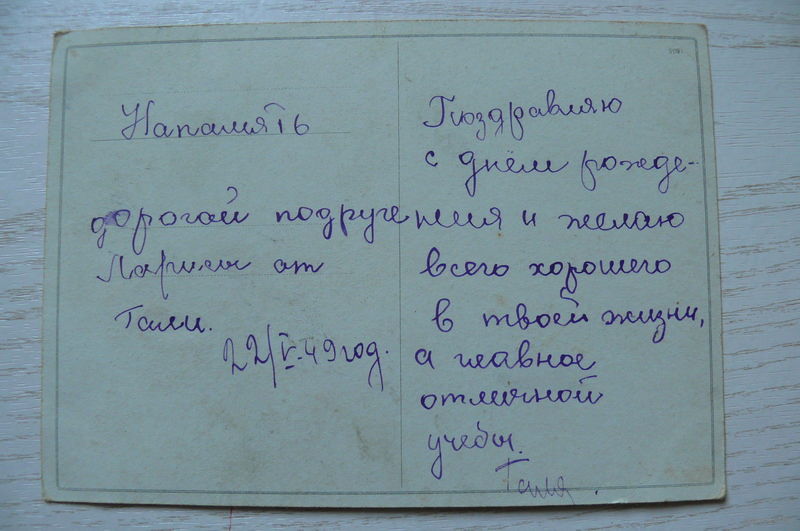 Напамять
дорогой подруге
Ларисы от
Гали.
22/V-49 год.
Поздравляю
с днём рожде-
ния и желаю
всего хорошего
в твоей жизни,
а главное
отличной
учебы.
Галя.